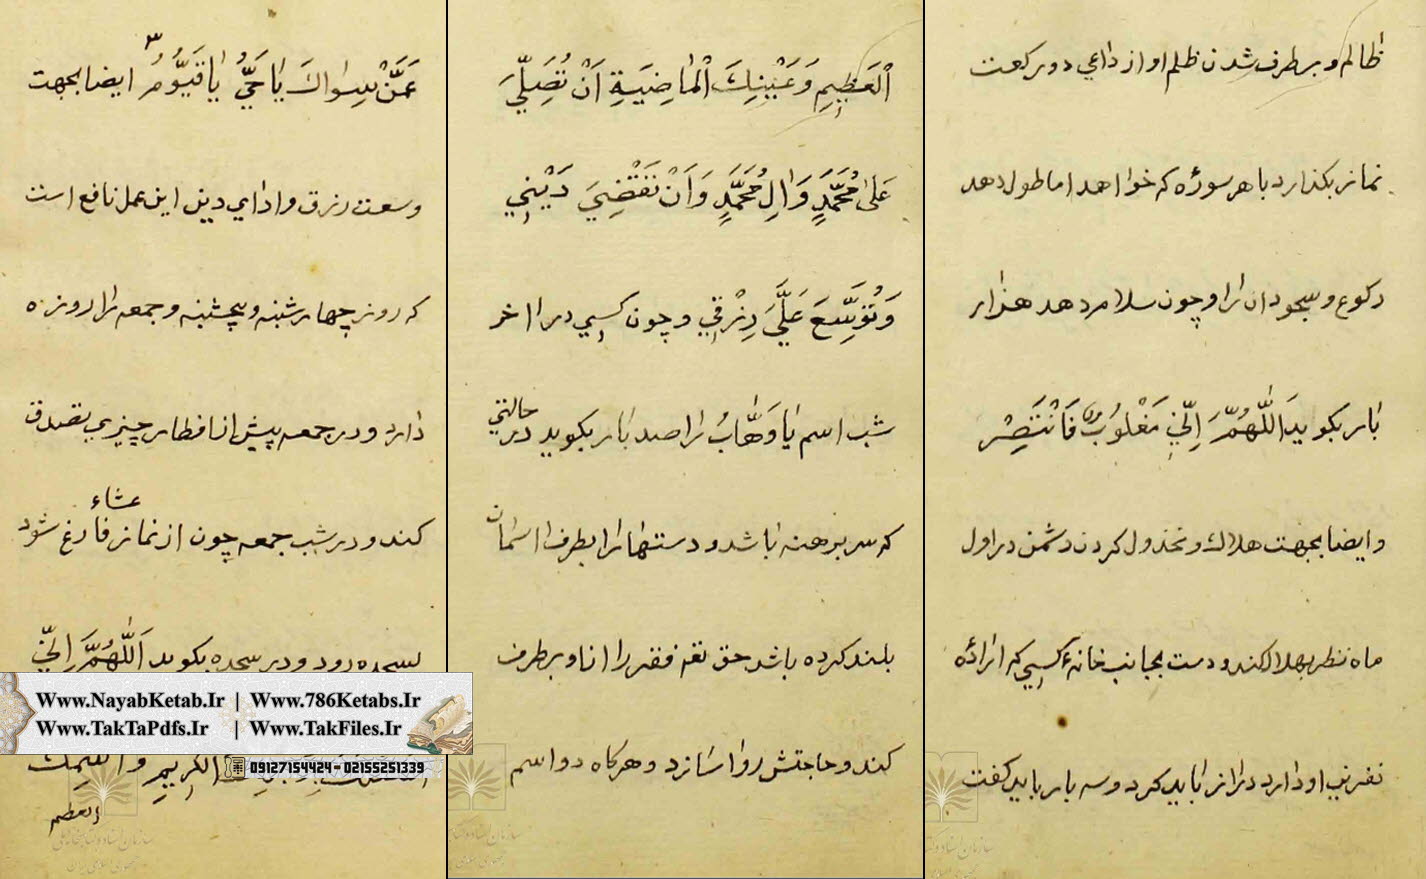 عَمَّنْ سِوٰاكَ يٰا حَيُّ يٰا قَيُّوْمُ ٣ ايضا بجهت
وسعت رزق و اداي دين اين عمل نافع است
كه روز چهارشنبه و پنجشنبه و جمعه را روزه
دارد و در جمعه پيش از افطار چيزي بتصدق
كند و در شب جمعه چون از نماز عشاء فارغ شود
بسجده رود و در سجده بگويد اَللّٰهُمَّ اِنّيٖ
الكَرِيمِ و
العظيم
اَلْعَظِيمِ وَ عَيْنِكَ اَلْمٰاضِيَةِ اَنْ تُصَلِّيَ
عَلىٰ مُحَمَّدٍ وَ اٰلِ مُحَمَّدٍ وَ اَنْ تَقْضِيَ دَيْنيٖ
وَ تُوَسِّعَ عَلَيَّ رِزْقيٖ و چون كسي در آخر
شب اسم يٰا وَهّٰابُ را صد بار بگويد در حالتي
كه سر برهنه باشد و دستها را بطرف آسمان
بلند كرده باشد حق تعٰه فقر را از او برطرف
كند و حاجتش روا سازد و هركاه دو اسم
ظالم و برطرف شدن ظلم او از داعي دو ركعت
نماز بكذارد با هر سوره كه خواهد اما طول دهد
ركوع و سجود آن را و چون سلام دهد هزار
بار بگويد اَللّٰهُمَّ اِنّيٖ مَغْلُوبٌ فَانْتَصِرْ
و ايضا بجهت هلاك و مخذول كردن دشمن در اول
ماه نظر بهلال كند و دست بجانب خانهٔ كسي كه اراده
نفرين او دارد دراز بايد كرد و سه بار بايد كفت
Www.NayabKetab.Ir | Www.786Ketabs.Ir
Www.TakTaPdfs.Ir | Www.TakFiles.Ir
09127154424 - 02155251339